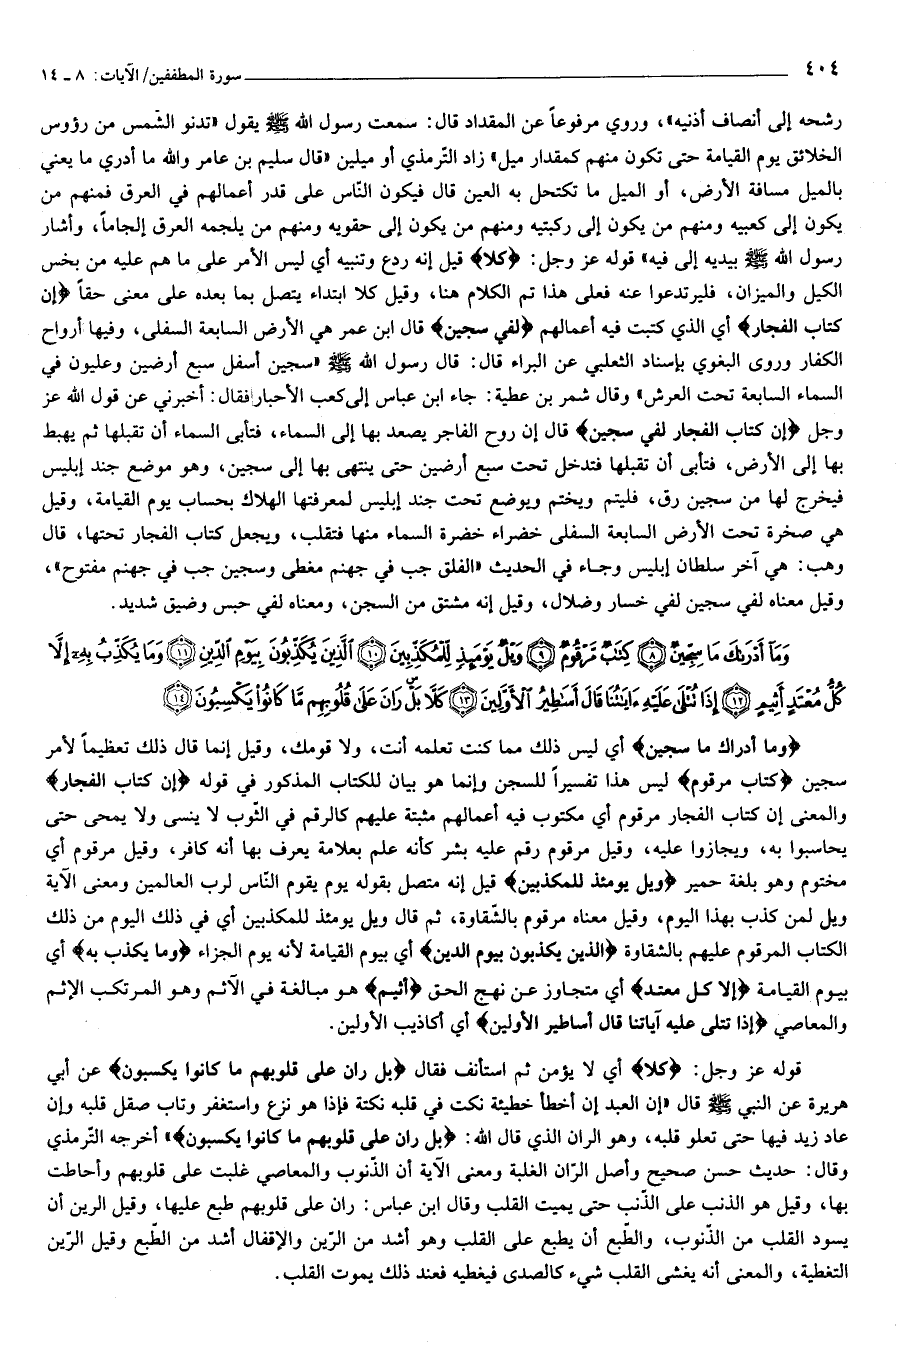 ٤٠٤ سورة المطففين/ الآيات: ٨ ـ ١٤
رشحه إلى أنصاف أذنيه»، وروي مرفوعاً عن المقداد قال: سمعت رسول الله ﷺ يقول «تدنو الشّمس من رؤوس
الخلائق يوم القيامة حتى تكون منهم كمقدار ميل» زاد التّرمذي أو ميلين «قال سليم بن عامر والله ما أدري ما يعني
بالميل مسافة الأرض، أو الميل ما تكتحل به العين قال فيكون النّاس على قدر أعمالهم في العرق فمنهم من
يكون إلى كعبيه ومنهم من يكون إلى ركبتيه ومنهم من يكون إلى حقويه ومنهم من يلجمه العرق إلجاماً، وأشار
رسول الله ﷺ بيديه إلى فيه» قوله عز وجل: ﴿كلا﴾ قيل إنه ردع وتنبيه أي ليس الأمر على ما هم عليه من بخس
الكيل والميزان، فليرتدعوا عنه فعلى هذا تم الكلام هنا، وقيل كلا ابتداء يتصل بما بعده على معنى حقاً ﴿إن
كتاب الفجار﴾ أي الذي كتبت فيه أعمالهم ﴿لفي سجين﴾ قال ابن عمر هي الأرض السابعة السفلى، وفيها أرواح
الكفار وروى البغوي بإسناد الثعلبي عن البراء قال: قال رسول الله ﷺ «سجين أسفل سبع أرضين وعليون في
السماء السابعة تحت العرش» وقال شمر بن عطية: جاء ابن عباس إلى كعب الأحبار فقال: أخبرني عن قول الله عز
وجل ﴿إن كتاب الفجار لفي سجين﴾ قال إن روح الفاجر يصعد بها إلى السماء، فتأبى السماء أن تقبلها ثم يهبط
بها إلى الأرض، فتأبى أن تقبلها فتدخل تحت سبع أرضين حتى ينتهى بها إلى سجين، وهو موضع جند إبليس
فيخرج لها من سجين رق، فليتم ويختم ويوضع تحت جند إبليس لمعرفتها الهلاك بحساب يوم القيامة، وقيل
هي صخرة تحت الأرض السابعة السفلى خضراء خضرة السماء منها فتقلب، ويجعل كتاب الفجار تحتها، قال
وهب: هي آخر سلطان إبليس وجاء في الحديث «الفلق جب في جهنم مغطى وسجين جب في جهنم مفتوح»،
وقيل معناه لفي سجين لفي خسار وضلال، وقيل إنه مشتق من السجن، ومعناه لفي حبس وضيق شديد.
وَمَآ أَدْرَىٰكَ مَا سِجِّينٌ ﴿٨﴾ كِتَٰبٌ مَّرْقُومٌ ﴿٩﴾ وَيْلٌ يَوْمَئِذٍ لِّلْمُكَذِّبِينَ ﴿١٠﴾ ٱلَّذِينَ يُكَذِّبُونَ بِيَوْمِ ٱلدِّينِ ﴿١١﴾ وَمَا يُكَذِّبُ بِهِۦٓ إِلَّا
كُلُّ مُعْتَدٍ أَثِيمٍ ﴿١٢﴾ إِذَا تُتْلَىٰ عَلَيْهِ ءَايَٰتُنَا قَالَ أَسَٰطِيرُ ٱلْأَوَّلِينَ ﴿١٣﴾ كَلَّا بَلْ رَانَ عَلَىٰ قُلُوبِهِم مَّا كَانُوا۟ يَكْسِبُونَ ﴿١٤﴾
﴿وما أدراك ما سجين﴾ أي ليس ذلك مما كنت تعلمه أنت، ولا قومك، وقيل إنما قال ذلك تعظيماً لأمر
سجين ﴿كتاب مرقوم﴾ ليس هذا تفسيراً للسجن وإنما هو بيان للكتاب المذكور في قوله ﴿إن كتاب الفجار﴾
والمعنى إن كتاب الفجار مرقوم أي مكتوب فيه أعمالهم مثبتة عليهم كالرقم في الثّوب لا ينسى ولا يمحى حتى
يحاسبوا به، ويجازوا عليه، وقيل مرقوم رقم عليه بشر كأنه علم بعلامة يعرف بها أنه كافر، وقيل مرقوم أي
مختوم وهو بلغة حمير ﴿ويل يومئذ للمكذبين﴾ قيل إنه متصل بقوله يوم يقوم النّاس لرب العالمين ومعنى الآية
ويل لمن كذب بهذا اليوم، وقيل معناه مرقوم بالشّقاوة، ثم قال ويل يومئذ للمكذبين أي في ذلك اليوم من ذلك
الكتاب المرقوم عليهم بالشقاوة ﴿الذين يكذبون بيوم الدين﴾ أي بيوم القيامة لأنه يوم الجزاء ﴿وما يكذب به﴾ أي
بيوم القيامة ﴿إلا كل معتد﴾ أي متجاوز عن نهج الحق ﴿أثيم﴾ هو مبالغة في الآثم وهو المرتكب الإثم
والمعاصي ﴿إذا تتلى عليه آياتنا قال أساطير الأولين﴾ أي أكاذيب الأولين.
قوله عز وجل: ﴿كلا﴾ أي لا يؤمن ثم استأنف فقال ﴿بل ران على قلوبهم ما كانوا يكسبون﴾ عن أبي
هريرة عن النبي ﷺ قال «إن العبد إن أخطأ خطيئة نكت في قلبه نكتة فإذا هو نزع واستغفر وتاب صقل قلبه وإن
عاد زيد فيها حتى تعلو قلبه، وهو الران الذي قال الله: ﴿بل ران على قلوبهم ما كانوا يكسبون﴾» أخرجه التّرمذي
وقال: حديث حسن صحيح وأصل الرّان الغلبة ومعنى الآية أن الذّنوب والمعاصي غلبت على قلوبهم وأحاطت
بها، وقيل هو الذنب على الذّنب حتى يميت القلب وقال ابن عباس: ران على قلوبهم طبع عليها، وقيل الرين أن
يسود القلب من الذّنوب، والطّبع أن يطبع على القلب وهو أشد من الرّين والإقفال أشد من الطّبع وقيل الرّين
التغطية، والمعنى أنه يغشى القلب شيء كالصدى فيغطيه فعند ذلك يموت القلب.